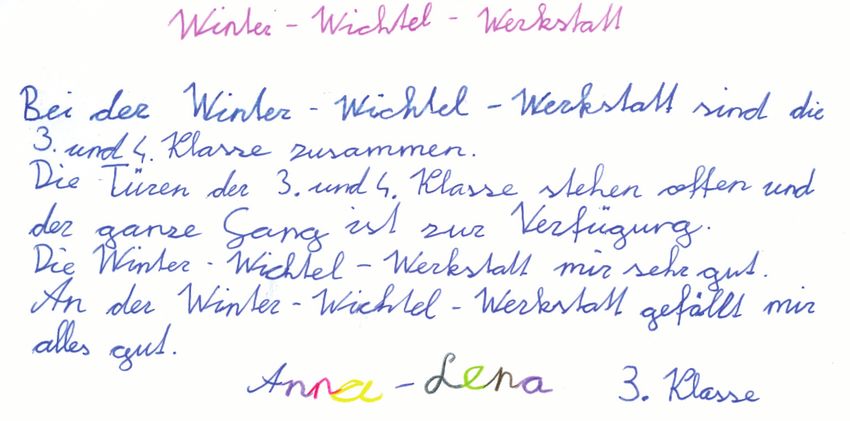 Winter - Wichtel - Werkstatt
Bei der Winter - Wichtel - Werkstatt sind die
3. und 4. Klasse zusammen.
Die Türen der 3. und 4. Klasse stehen offen und
der ganze Gang ist zur Verfügung.
Die Winter - Wichtel - Werkstatt mir sehr gut.
An der Winter - Wichtel - Werkstatt gefällt mir
alles gut.
Anna - Lena 3. Klasse